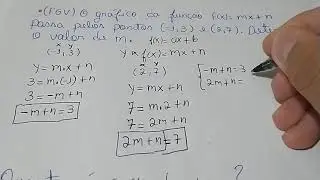 •(FGV) O gráfico da função f(x)=mx+n
passa pelos pontos (-1,3) e (2,7). Dete
o valor de m. f(x)=ax+b
x y
(-1,3)
y = m.x+n
3 = m.(-1)+n
3 = -m+n
-m+n=3
y = f(x)=mx+n
x y
(2,7)
y = mx+n
7 = m.2+n
7 = 2m+n
2m+n=7
{-m+n=3
2m+n=